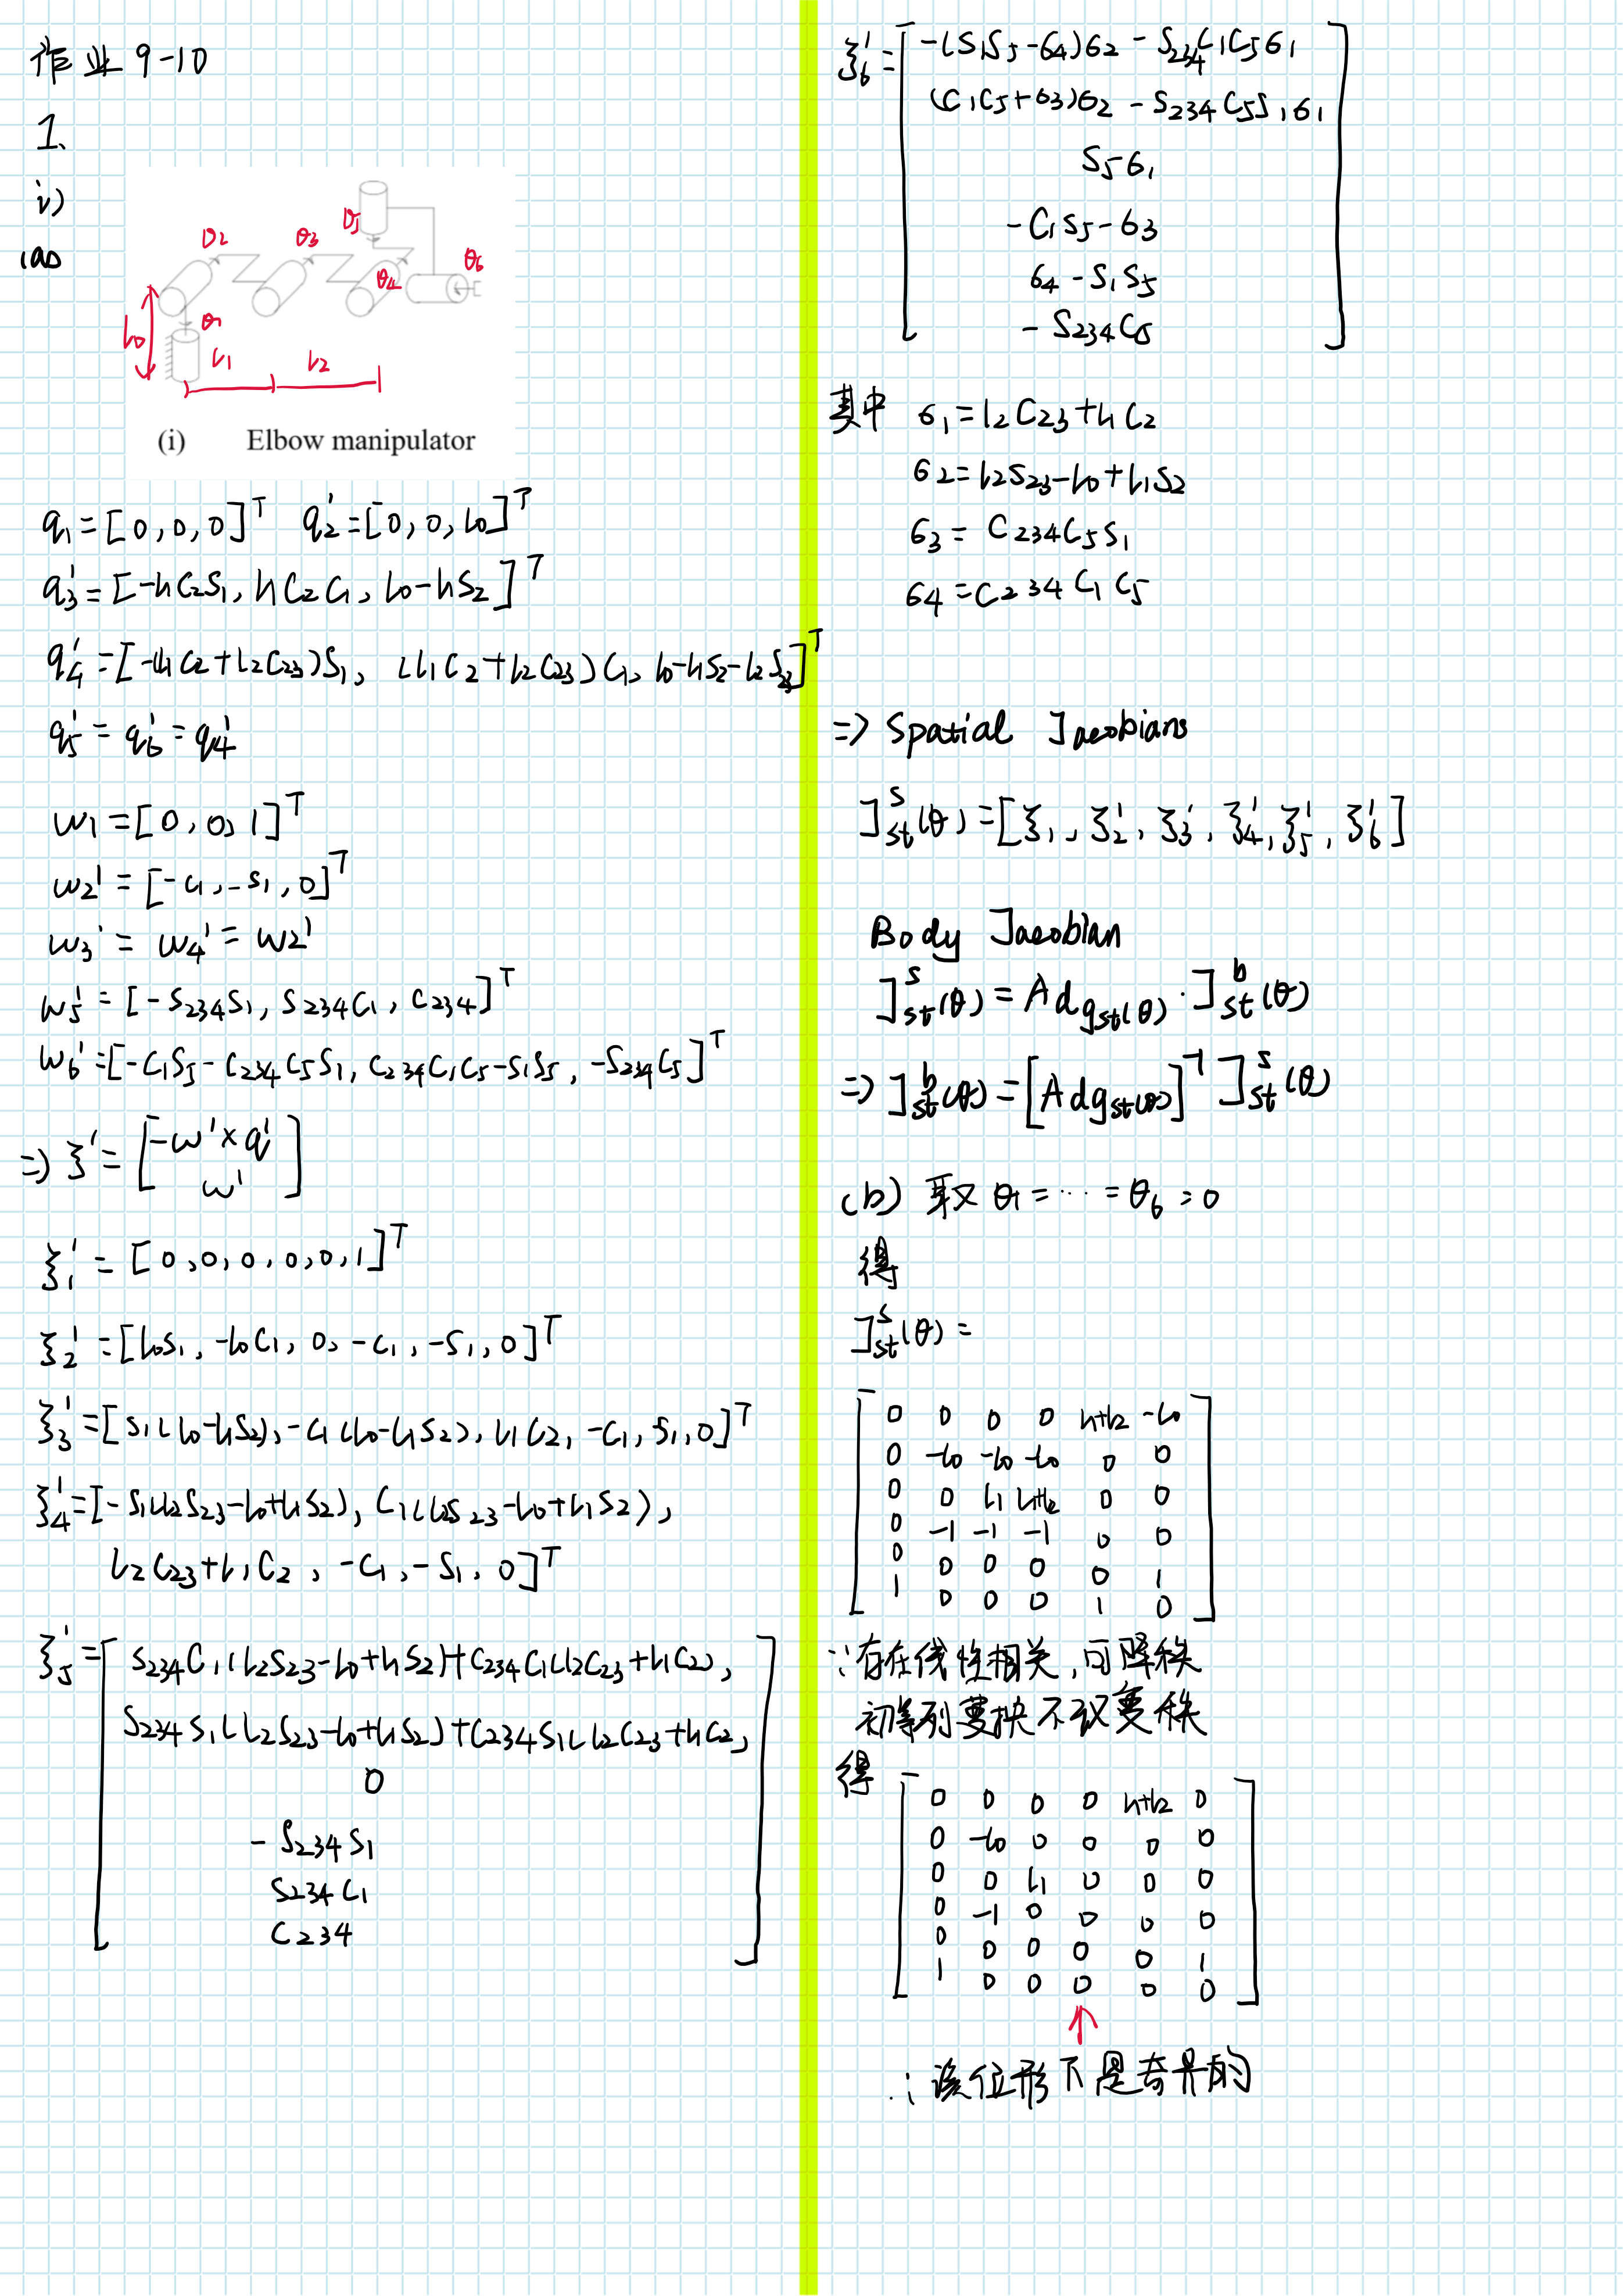 作业 9-10
1、
i)
(a)
θ2 θ3 θ5 θ6
θ4
θ1
l0 l1 l2
(i) Elbow manipulator
q1=[0,0,0]ᵀ q2'=[0,0,l0]ᵀ
q3'=[-l1C2S1, l1C2C1, l0-l1S2]ᵀ
q4'=[-(l1C2+l2C23)S1, (l1C2+l2C23)C1, l0-l1S2-l2S23]ᵀ
q5'=q6'=q4'
w1=[0,0,1]ᵀ
w2'=[-c1,-s1,0]ᵀ
w3'=w4'=w2'
w5'=[-S234S1, S234C1, C234]ᵀ
w6'=[-C1S5-C234C5S1, C234C1C5-S1S5, -S234C5]ᵀ
=> ξ'=[-w'×q'
w']
ξ1'=[0,0,0,0,0,1]ᵀ
ξ2'=[l0s1, -l0c1, 0, -c1, -s1, 0]ᵀ
ξ3'=[s1(l0-l1s2), -c1(l0-l1s2), l1c2, -c1, s1, 0]ᵀ
ξ4'=[-s1(l2S23-l0+l1S2), C1(l2S23-l0+l1S2),
l2C23+l1C2, -C1, -S1, 0]ᵀ
ξ5'=[S234C1(l2S23-l0+l1S2)+C234C1(l2C23+l1C2),
S234S1(l2S23-l0+l1S2)+C234S1(l2C23+l1C2),
0
-S234S1
S234C1
C234]
ξ6'=[-(S1S5-σ4)σ2-S234C1C5σ1
(C1C5+σ3)σ2-S234C5S1σ1
S5σ1
-C1S5-σ3
σ4-S1S5
-S234C5]
其中 σ1=l2C23+l1C2
σ2=l2S23-l0+l1S2
σ3=C234C5S1
σ4=C234C1C5
=> Spatial Jacobians
Jˢst(θ)=[ξ1, ξ2', ξ3', ξ4', ξ5', ξ6']
Body Jacobian
Jˢst(θ)=Adgst(θ)·Jᵇst(θ)
=> Jᵇst(θ)=[Adgst(θ)]⁻¹Jˢst(θ)
(b) 取 θ1=…=θ6=0
得
Jˢst(θ)=
0 0 0 0 l1+l2 -l0
0 -l0 -l0 -l0 0 0
0 0 l1 l1+l2 0 0
0 -1 -1 -1 0 0
0 0 0 0 0 1
1 0 0 0 1 0
∵存在线性相关,可降秩
初等列变换不改变秩
得
0 0 0 0 l1+l2 0
0 -l0 0 0 0 0
0 0 l1 0 0 0
0 -1 0 0 0 0
0 0 0 0 0 1
1 0 0 0 0 0
↑
∴该位形下是奇异的